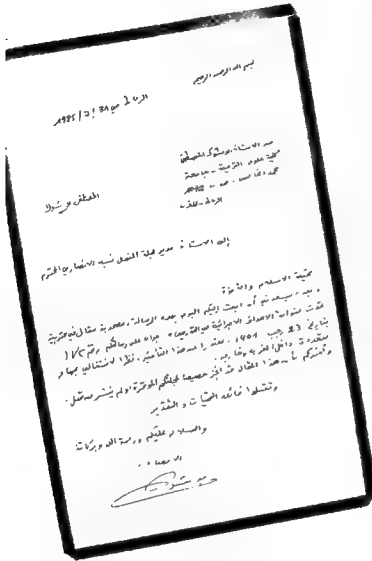 بسم الله الرحمن الرحيم
الرباط في 28/2/1985
من الاستاذ
كلية علوم التربية - جامعة
محمد الخامس. ص. ب 1072
الرباط - المغرب
المصطفى
إلى الاستاذ مدير مجلة المنهل نبيه الانصاري المحترم
تحية الاسلام والأخوة
وبعد، يسعدني أن أبعث إليكم اليوم بهذه الرسالة، مصحوبة بمقال في التربية
تحت عنوان الأهداف الاجرائية جوابا على رسالتكم رقم
بتاريخ رجب 1404. معتذرا عن هذا التأخير نظرا لانشغالي بمهام
متعددة داخل المغرب وخارجه.
وأخبركم بأن هذا المقال قد أنجز خصيصا لمجلتكم الموقرة ولم ينشر من قبل.
وتفضلوا فائق التحيات والتقدير
والسلام عليكم ورحمة الله وبركاته
الامضاء.